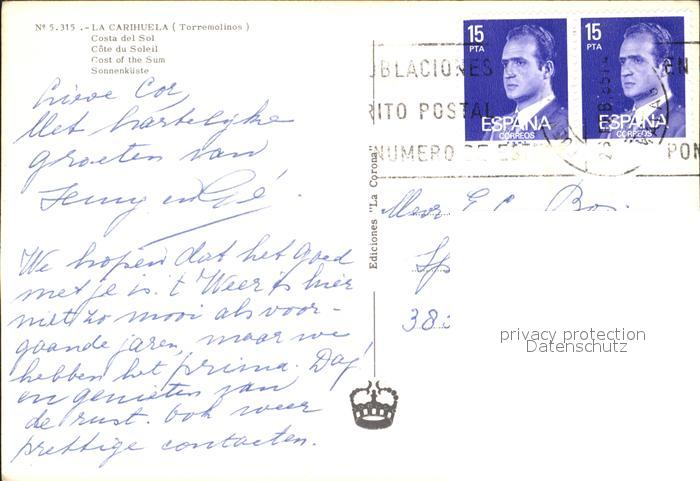 Nº 5.315 .- LA CARIHUELA ( Torremolinos )
Costa del Sol
Côte du Soleil
Cost of the Sum
Sonnenküste
15
PTA
ESPAÑA
CORREOS
15
PTA
ESPAÑA
CORREOS
BLACIONES EN
RITO POSTAL
NUMERO DE PON
Lieve Cor,
Met hartelijke
groeten van
Jenny en Gé.
We hopen dat het goed
met je is. 't Weer is hier
niet zo mooi als voor-
gaande jaren, maar we
hebben het prima. Dag!
en genieten van
de rust. Ook weer
prettige contacten.
Ediciones "La Corona"
Mevr
38
privacy protection
Datenschutz